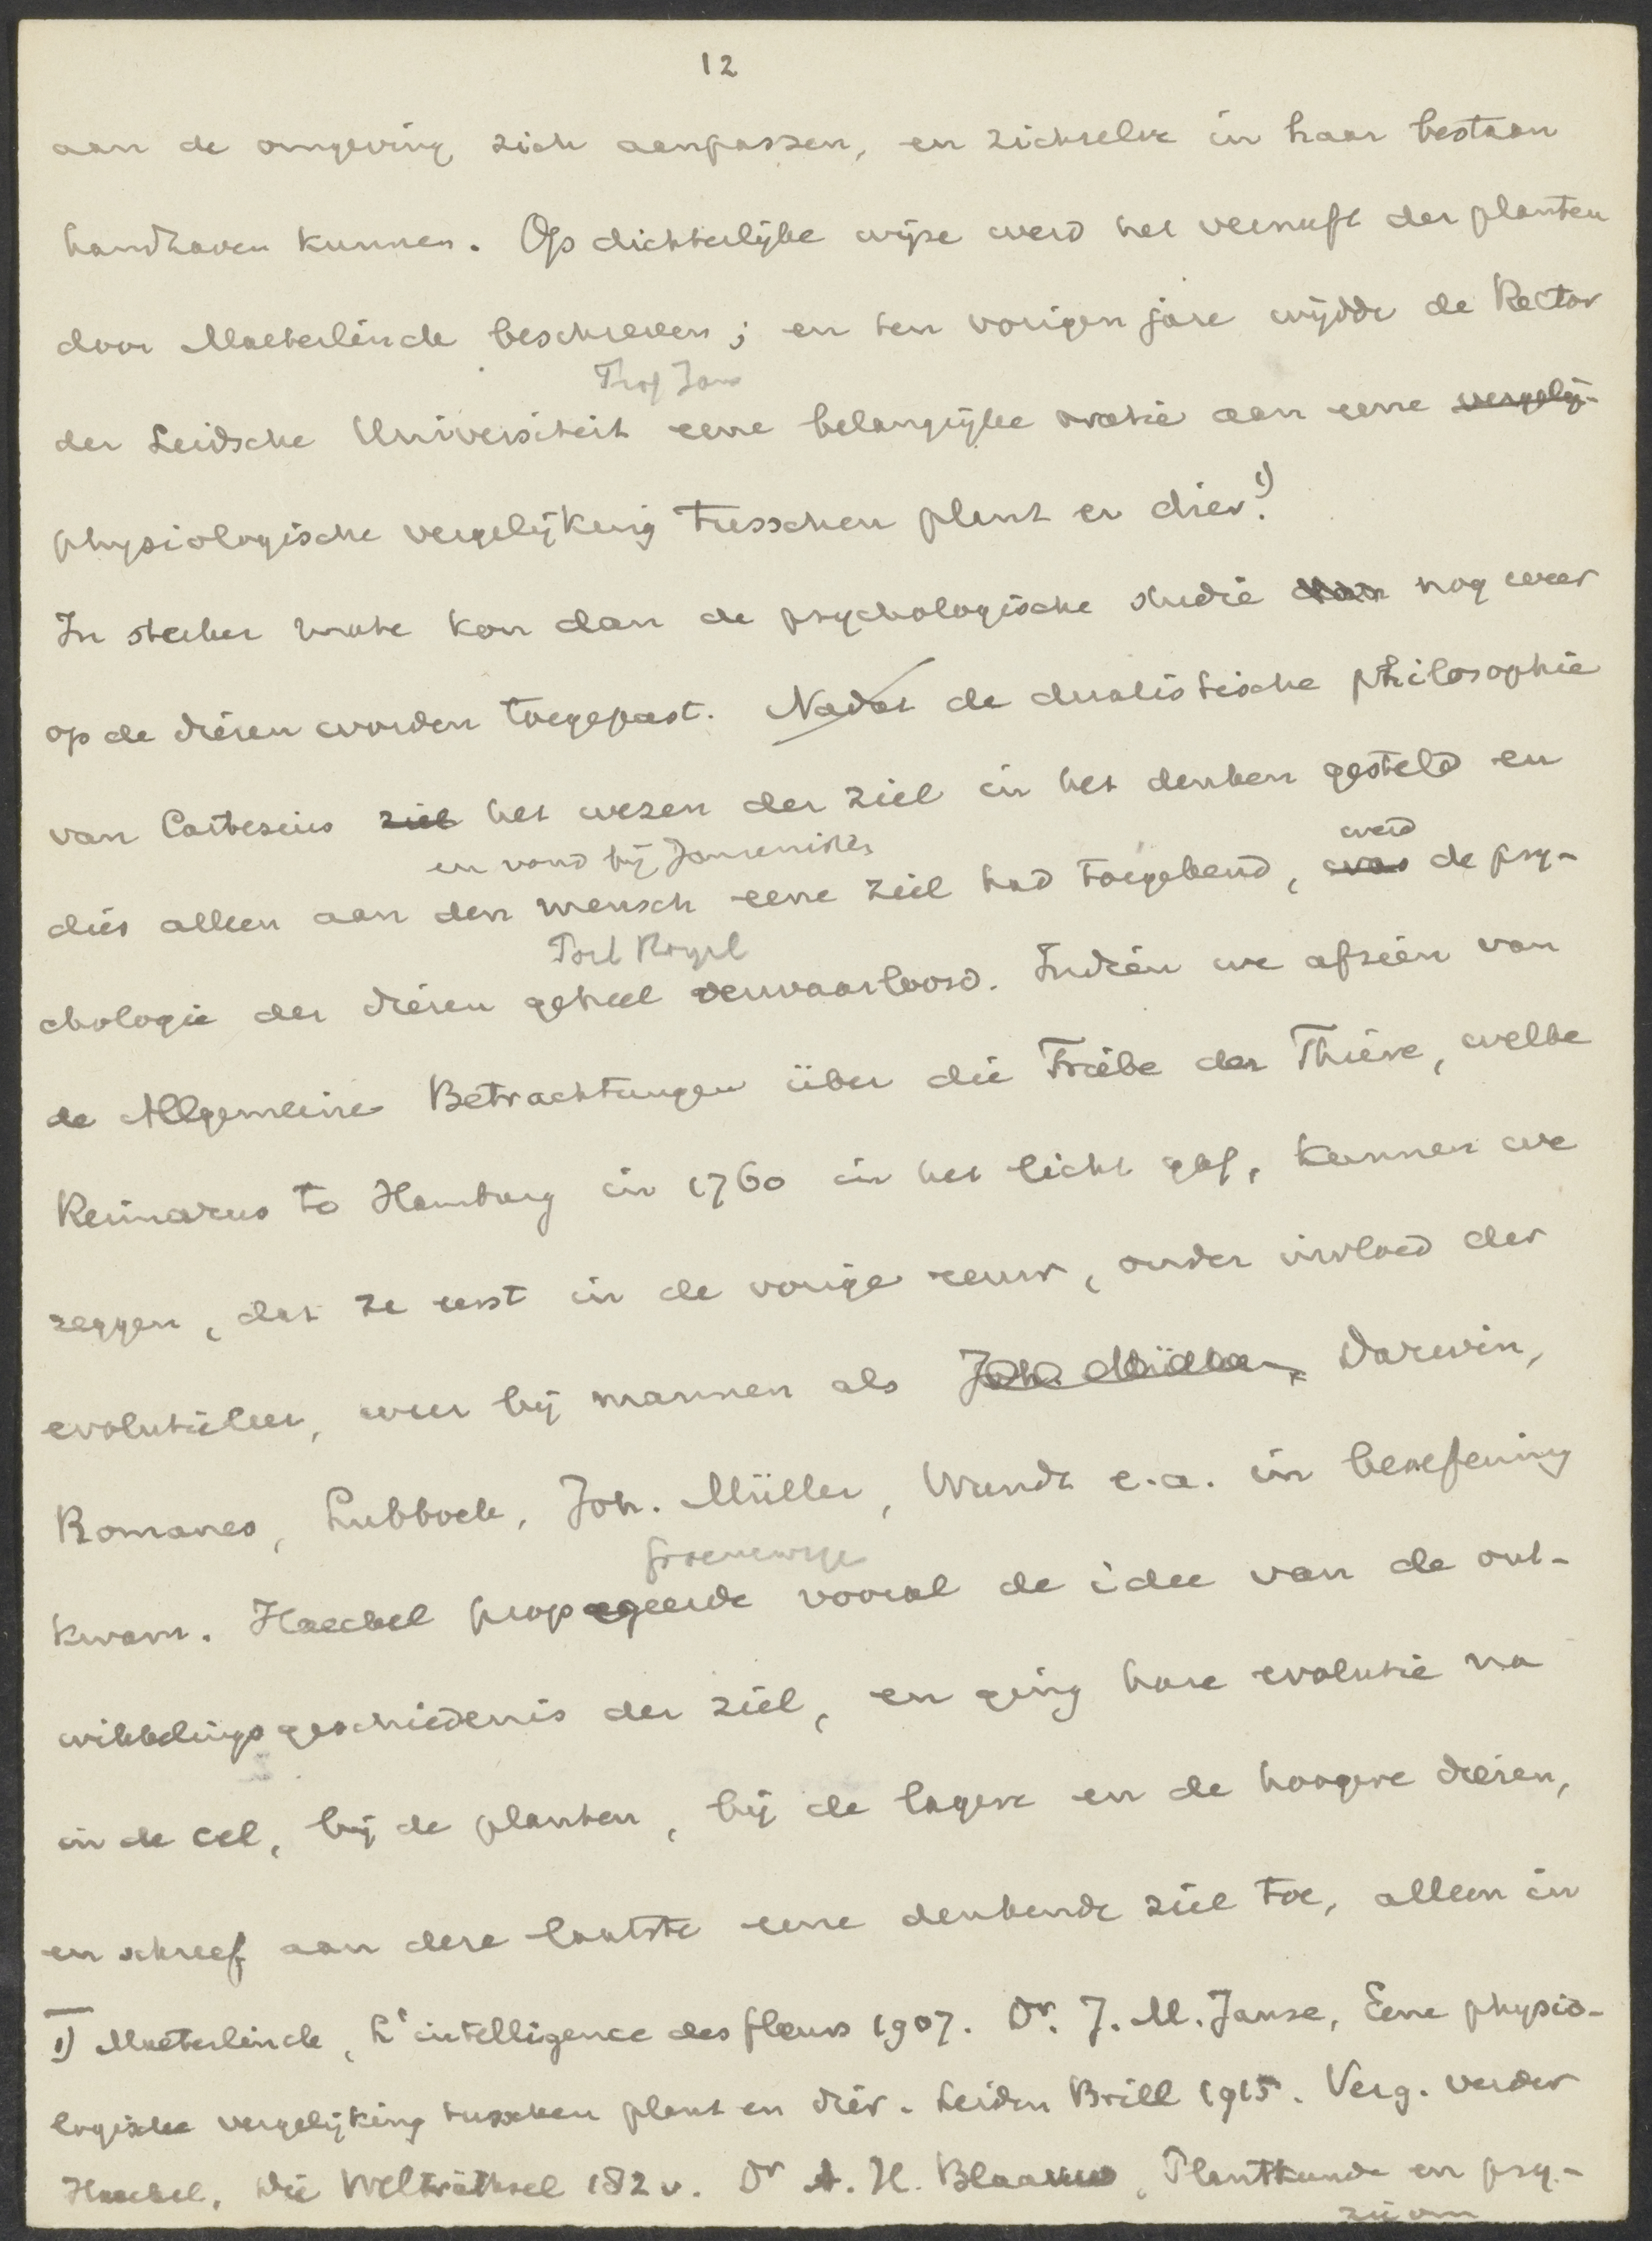 12
aan de omgeving zich aanpassen, en zichzelve in haar bestaan
handhaven kunnen. Op dichterlijke wijze werd het vernuft der planten
door Maeterlinck beschreven; en ten vorigen jare wijdde de Rector
Prof Jans
der Leidsche Universiteit eene belangrijke oratie aan eene vergelij-
physiologische vergelijking tusschen plant en dier. 1)
In sterker mate kon dan de psychologische studie dan nog weer
op de dieren worden toegepast. Nadat de dualistische philosophie
van Cartesius ziel het wezen der ziel in het denken gesteld en
en vond bij Jansenisten
werd
dus alleen aan den mensch eene ziel had toegekend, was de psy-
Port Royal
chologie der dieren geheel verwaarloosd. Indien we afzien van
de Allgemeine Betrachtungen über die Triebe der Thiere, welke
Reimarus te Hamburg in 1760 in het licht gaf, kunnen we
zeggen, dat ze eerst in de vorige eeuw, onder invloed der
evolutieleer, weer bij mannen als Joh. Müller, Darwin,
Romanes, Lubbock, Joh. Müller, Wundt e.a. in beoefening
kwam. Haeckel propageerde vooral de idee van de ont-
wikkelingsgeschiedenis der ziel, en ging hare evolutie na
in de cel, bij de planten, bij de lagere en de hoogere dieren,
en schreef aan deze laatste eene denkende ziel toe, alleen in
1) Maeterlinck, L'intelligence des fleurs 1907. Dr. J. M. Janse, Eene physio-
logische vergelijking tusschen plant en dier. Leiden Brill 1915. Verg. verder
Haeckel, Die Welträthsel 182 v. Dr A. H. Blaauw, Plantkunde en psy-